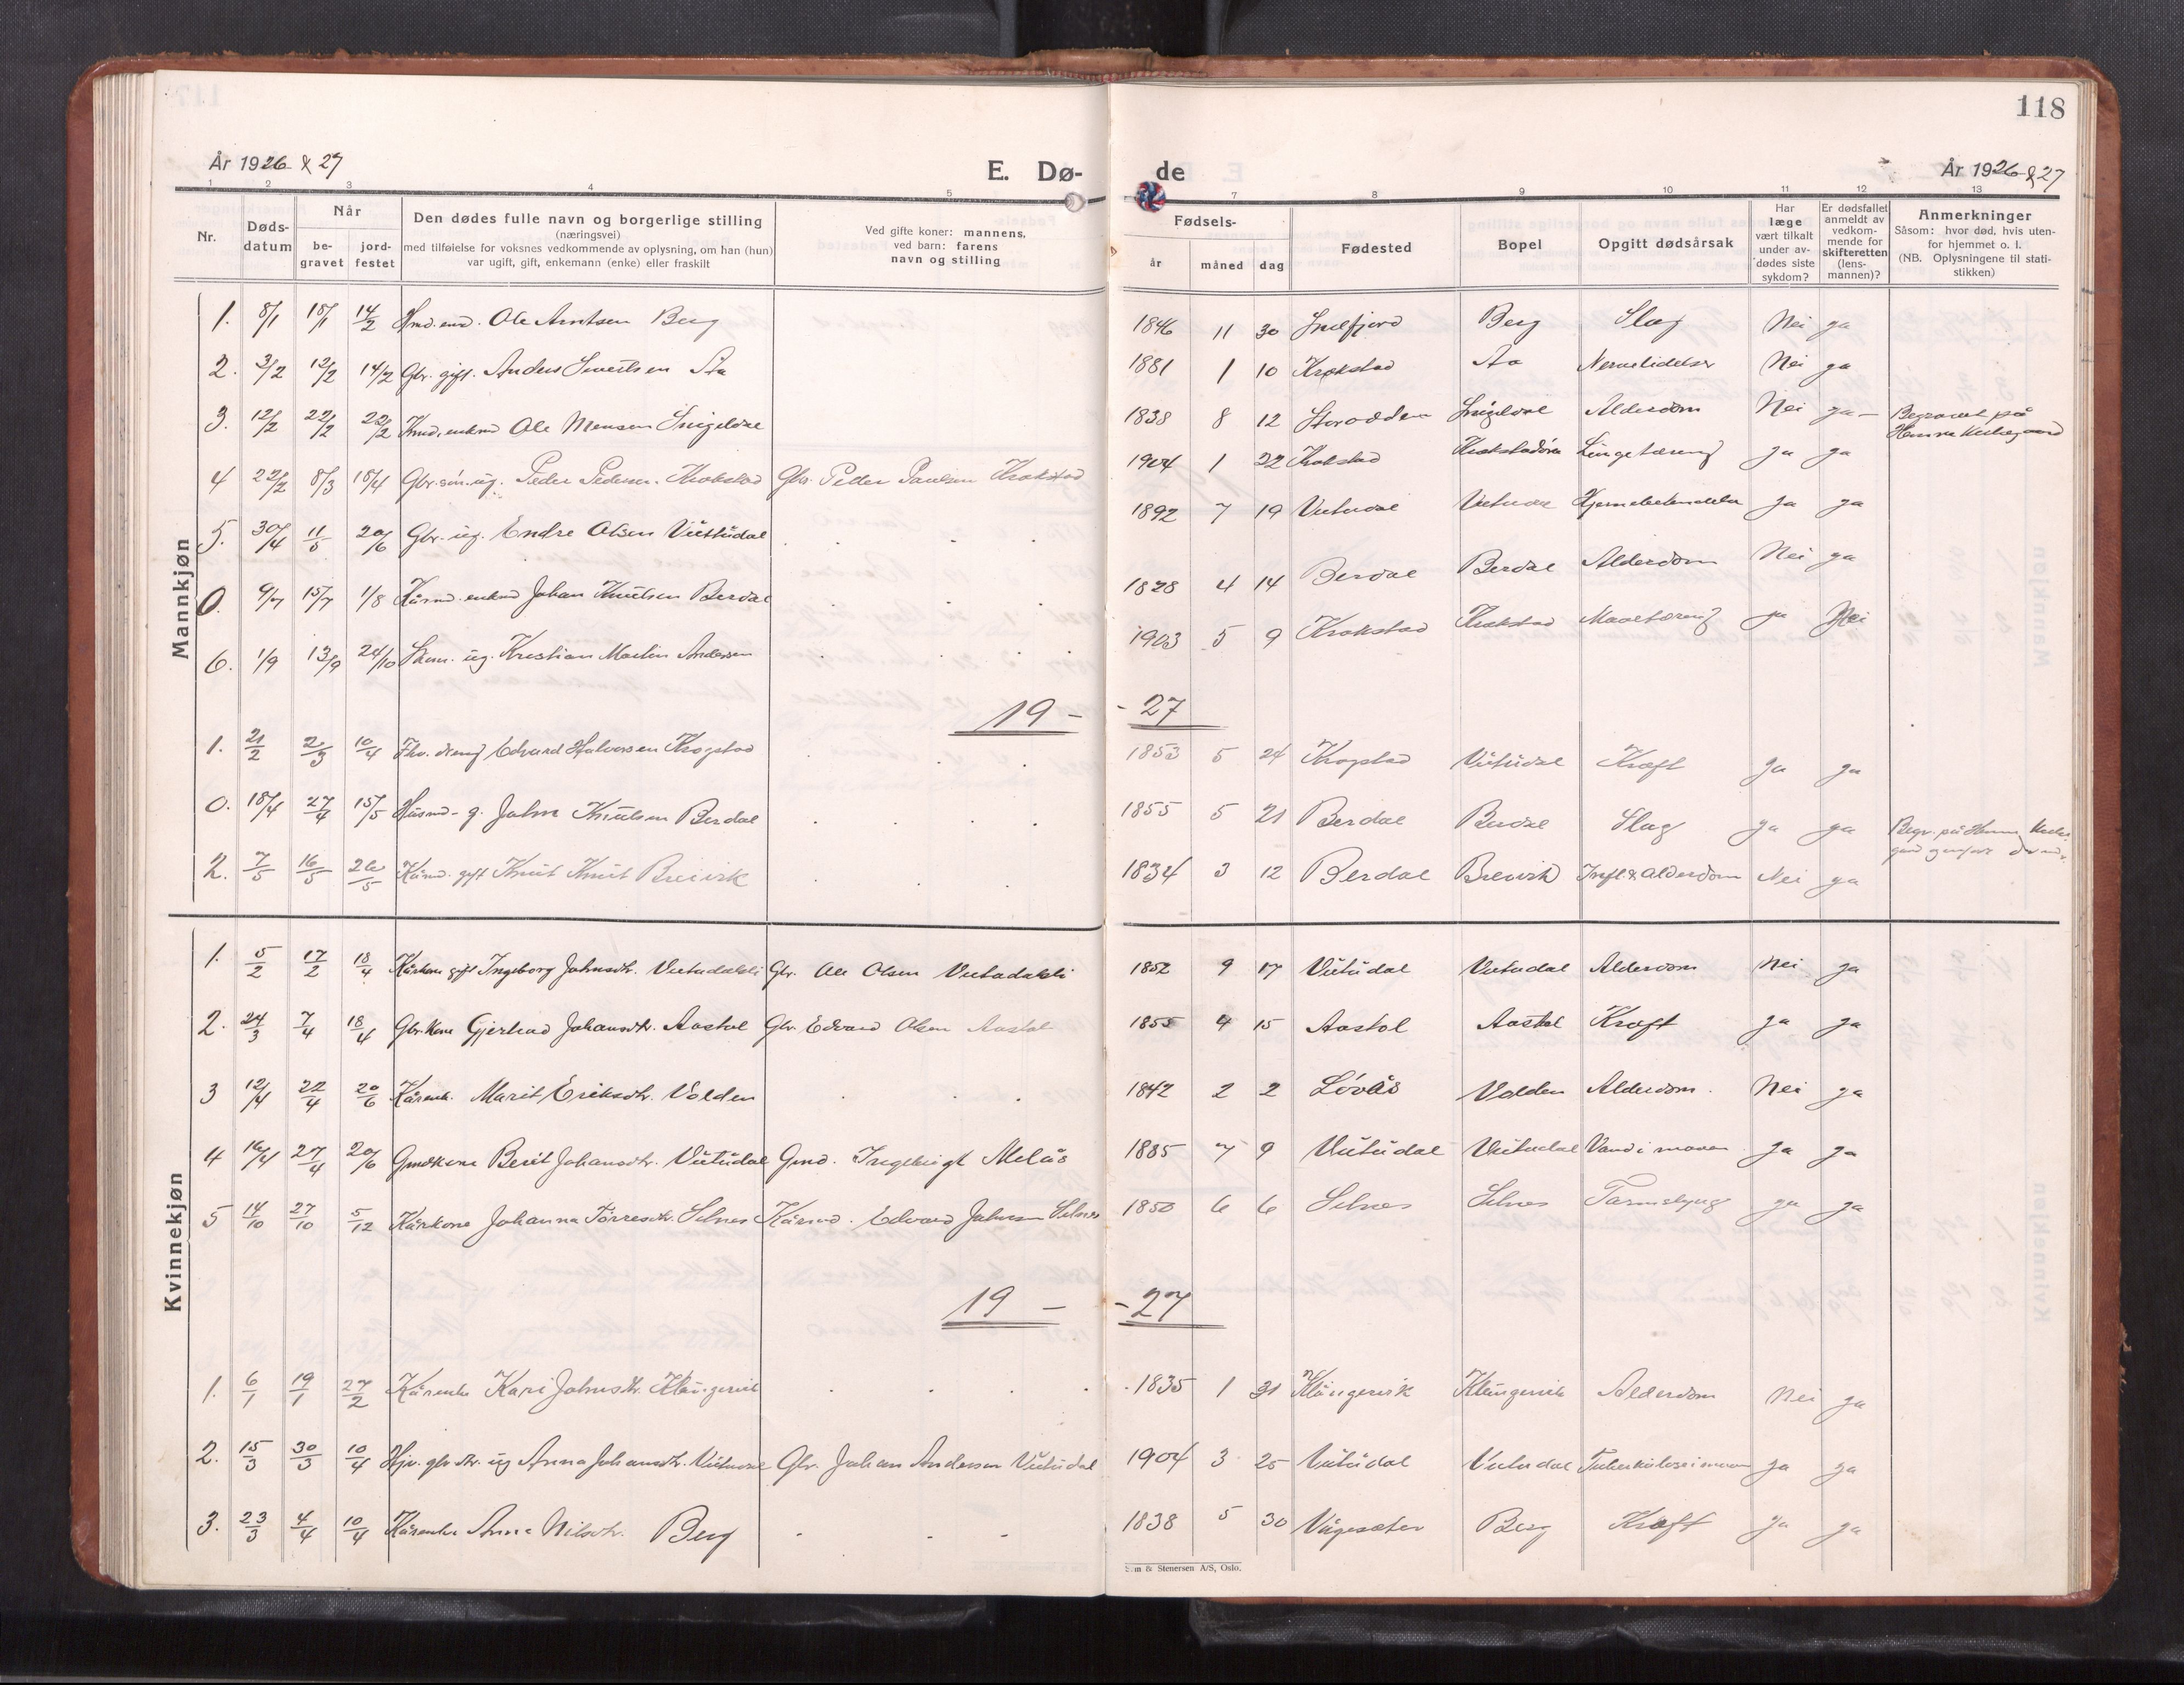 118
År 1926 & 27
E. Dø-
de
År 1926 & 27
1 2 3 4 5 7 8 9 10 11 12 13
Nr.
Døds-
datum
Når
be-
gravet
jord-
festet
Den dødes fulle navn og borgerlige stilling
(næringsvei)
med tilføielse for voksnes vedkommende av oplysning, om han (hun)
var ugift, gift, enkemann (enke) eller fraskilt
Ved gifte koner: mannens,
ved barn: farens
navn og stilling
Fødsels-
år måned dag
Fødested
Bopel
Opgitt dødsårsak
Har
læge
vært tilkalt
under av-
dødes siste
sykdom?
Er dødsfallet
anmeldt av
vedkom-
mende for
skifteretten
(lens-
mannen)?
Anmerkninger
Såsom: hvor død, hvis uten-
for hjemmet o. l.
(NB. Oplysningene til stati-
stikken)
Mannkjøn
1. 8/1 18/1 14/2 Ole Arntsen Berg 1846 11 30 Snilfjord Berg Slag Nei ja
2. 3/2 12/2 14/2 Gbr. gift. Anders Sivertsen Aa 1881 1 10 Krokstad Aa Nervelidelser Nei ja
3. 12/2 22/2 22/2 Ole Monsen Snigeldal 1838 8 12 Storodden Snigeldal Alderdom Nei ja - Begravet på
Hemne Kirkegaard
4 22/2 8/3 18/4 Gbr. sön. ug. Peder Pedersen Krokstad Gbr. Peder Paulsen Krokstad 1904 1 22 Krokstad Krokstadöra Lungetæring ja ja
5. 30/4 11/5 20/6 Gbr. ug. Endre Olsen Vuttudal . . . 1892 7 19 Vutudal Vutudal Hjernebetændelse ja ja
0. 9/7 15/7 1/8 Kårmd. enkmd Johan Knutsen Berdal . . . 1828 4 14 Berdal Berdal Alderdom Nei ja
6. 1/9 13/9 24/10 ug. Kristian Martin Andersen . . . 1903 5 9 Krokstad Krokstad Mavetæring ja Nei
19 - - 27
1. 21/2 2/3 10/4 Fhv. dreng Edvard Halvorsen Krogstad . . . 1853 5 24 Krogstad Vutudal Kræft ja ja
0. 18/4 27/4 15/5 Husmd. g. John Knutsen Berdal . . . 1855 5 21 Berdal Berdal Slag ja ja Begr. på Hemne
2. 7/5 16/5 26/5 Kårmd. gift Knut Knut Breivik . . . 1834 3 12 Berdal Breivik Infl & Alderdom Nei ja
Kvinnekjøn
1. 5/2 17/2 18/4 Kårkone gift Ingeborg Johnsdtr. Vutudalsli Gbr. Ole Olsen Vutudalsli 1852 9 17 Vutudal Vutudal Alderdom Nei ja
2. 24/3 7/4 18/4 Gbr. Kone Gjertrud Johansdtr. Aastøl Gbr. Edvard Olsen Aastøl 1855 4 15 Aastøl Aastøl Kræft ja ja
3 12/4 22/4 20/6 Kårenk. Marit Eriksdtr. Volden . . . 1842 2 2 Lövås Volden Alderdom. Nei ja
4 16/4 27/4 20/6 Gmdkone Berit Johansdtr. Vutudal Gmd. Ingebrigt Melås 1885 7 9 Vutudal Vutudal Vand i maven ja ja
5 14/10 27/10 5/12 Kårkone Johanna Tørresdtr. Selnes Kårmd. Edvard Johnsen Selnes 1850 6 6 Selnes Selnes Tarmslyng ja ja
19 - - 27
1. 6/1 19/1 27/2 Kårenke Kari Johnsdtr. Klungervik . . . 1835 1 31 Klungervik Klungervik Alderdom Nei ja
2. 15/3 30/3 10/4 Hjv. gbr dtr. ug Anna Johansdtr. Vutudal Gbr. Johan Andersen Vutudal 1904 3 25 Vutudal Vutudal Tuberkulose i maven ja ja
3. 23/3 4/4 10/4 Kårenke Anna Nilsdtr. Berg . . . 1838 5 30 Vågesæter Berg Kræft ja ja
Sem & Stenersen A/S, Oslo.